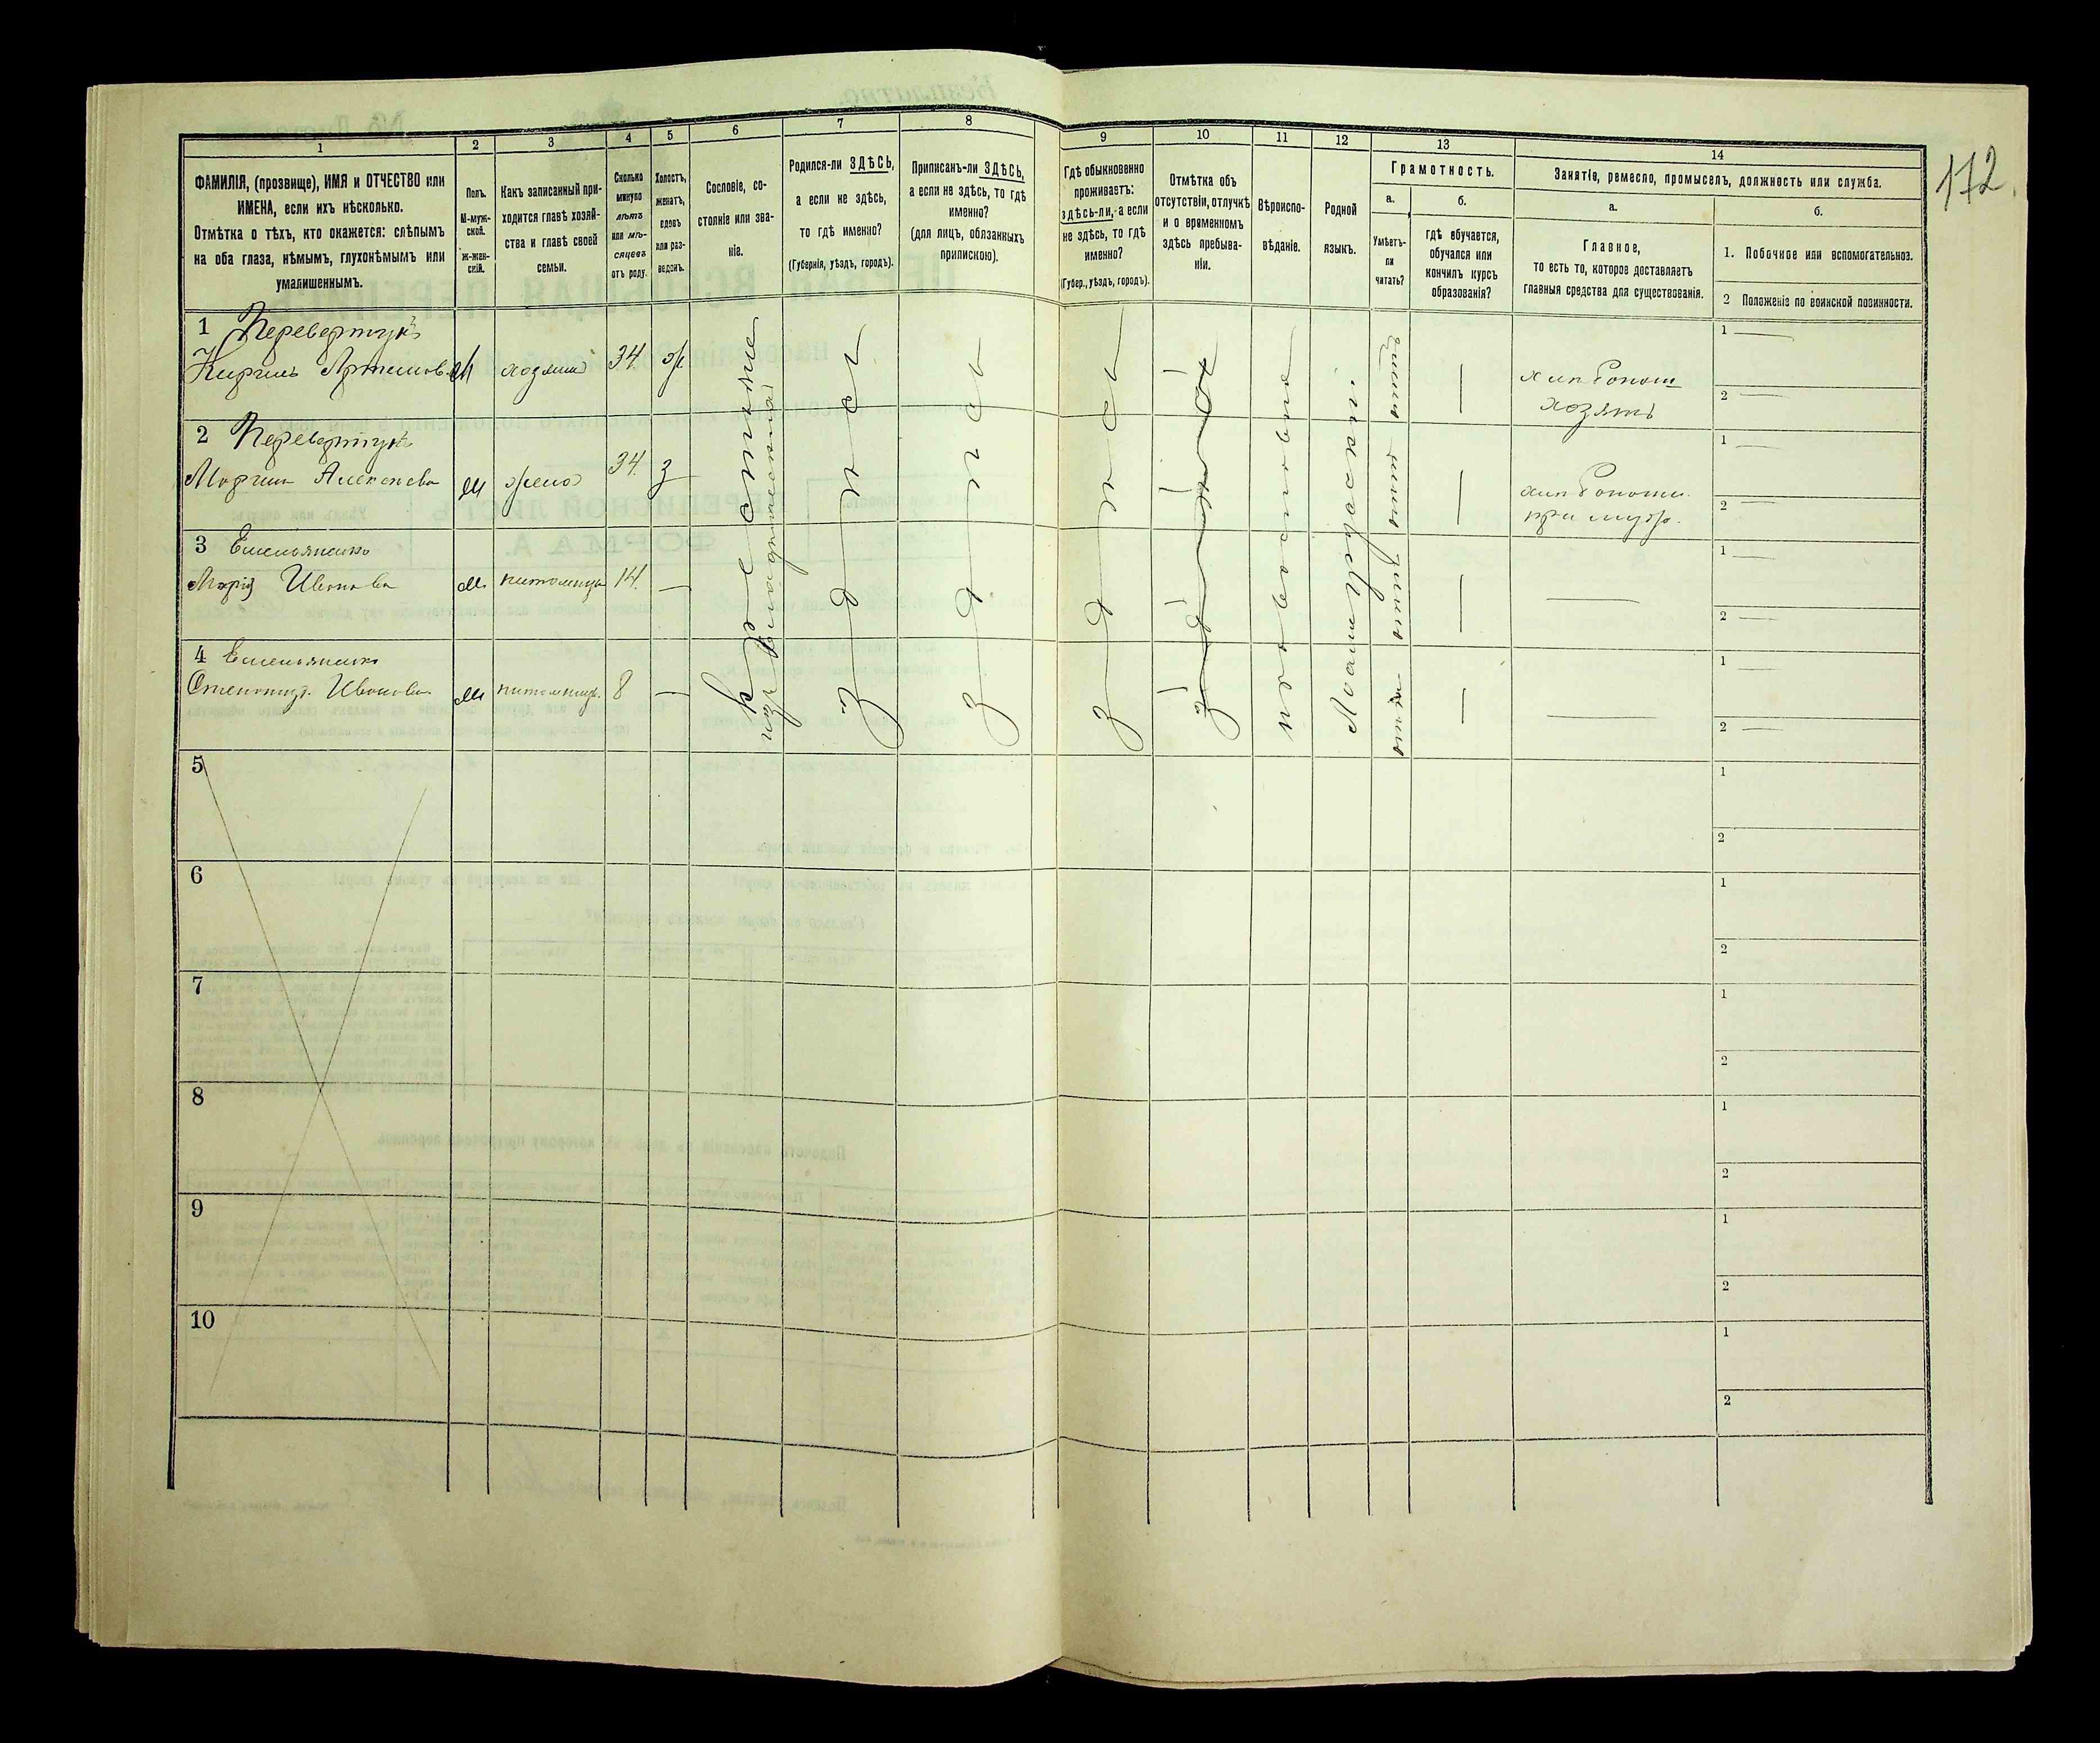 172.
1
2
3
4
5
6
7
8
9
10
11
12
13
14
ФАМИЛІЯ, (прозвище), ИМЯ и ОТЧЕСТВО или
ИМЕНА, если ихъ нѣсколько.
Отмѣтка о тѣхъ, кто окажется: слѣпымъ
на оба глаза, нѣмымъ, глухонѣмымъ или
умалишеннымъ.
Полъ.
М-муж-
ской.
Ж-жен-
скій.
Какъ записанный при-
ходится главѣ хозяй-
ства и главѣ своей
семьи.
Сколько
минуло
лѣтъ
или мѣ-
сяцевъ
отъ роду.
Холостъ,
женатъ,
вдовъ
или раз-
веденъ.
Сословіе, со-
стояніе или зва-
ніе.
Родился-ли ЗДѢСЬ,
а если не здѣсь,
то гдѣ именно?
(Губернія, уѣздъ, городъ).
Приписанъ-ли ЗДѢСЬ,
а если не здѣсь, то гдѣ
именно?
(для лицъ, обязанныхъ
припискою).
Гдѣ обыкновенно
проживаетъ:
здѣсь-ли, а если
не здѣсь, то гдѣ
именно?
(Губер., уѣздъ, городъ).
Отмѣтка объ
отсутствіи, отлучкѣ
и о временномъ
здѣсь пребыва-
ніи.
Вѣроиспо-
вѣданіе.
Родной
языкъ.
Грамотность.
а.
Умѣетъ-
ли
читать?
б.
гдѣ обучается,
обучался или
кончилъ курсъ
образованія?
Занятіе, ремесло, промыселъ, должность или служба.
а.
Главное,
то есть то, которое доставляетъ
главныя средства для существованія.
б.
1. Побочное или вспомогательное.
2 Положеніе по воинской повинности.
1 Перевертунъ
Кирилъ Артемов. М хозяинъ 34. ж
хлѣбопаш
хозяинъ
1
2
2 Перевертунъ
Марина Алексѣева жена 34. з
хлѣбопаш.
при мужѣ.
1
2
3 Емельяненко
Марія Иванова питомица 14. —
1
2
4 Емельяненко
Степанид. Иванова питомица. 8 —
1
2
крестьяне
изъ владѣльческихъ
здѣсь
здѣсь
здѣсь
здѣсь
православное
Малорусскій
5
1
2
6
1
2
7
1
2
8
1
2
9
1
2
10
1
2